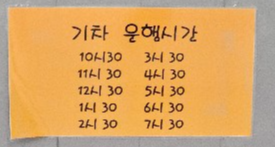 기차 운행시간
10시30 3시 30
11시 30 4시 30
12시 30 5시 30
1시 30 6시 30
2시 30 7시 30